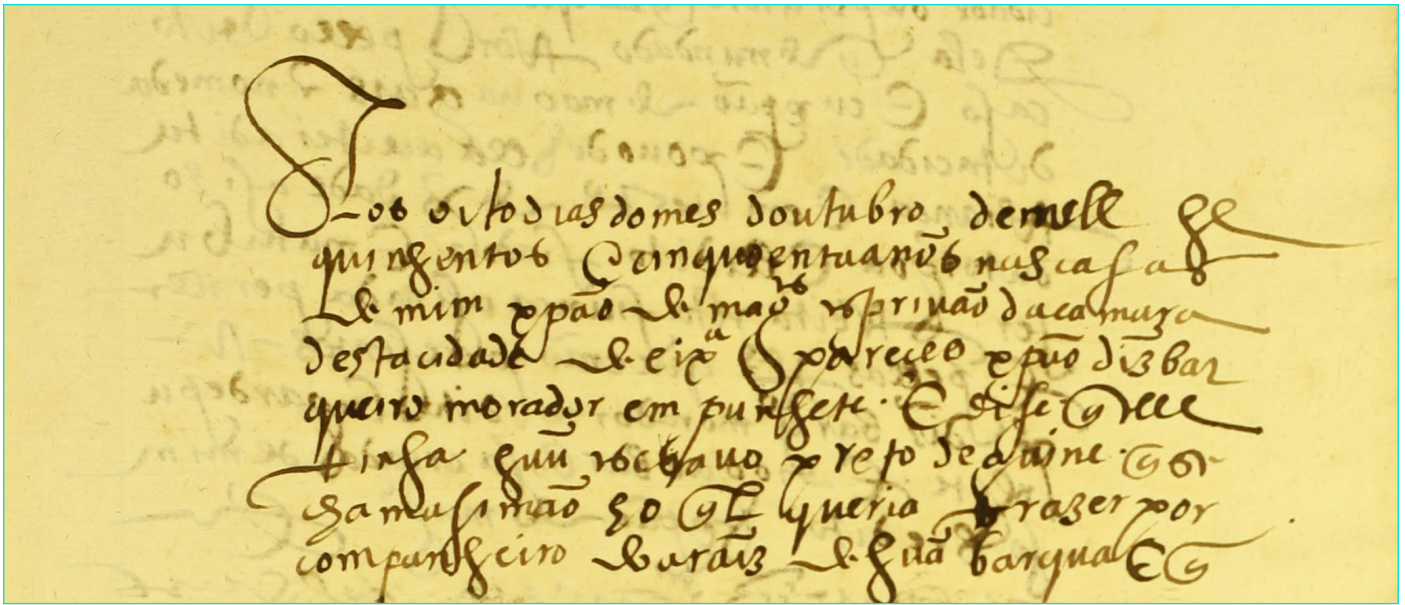 Aos oito dias do mes doutubro de mill e
quinhentos e cinquoenta anos nas casas
de mim xpão de magrs esprivão da camara
desta cidade de lixa pareceo xpvão diz bar
queiro morador em punhete. E dise q elle
tinha huu escravo preto de guine. q se
chama simão ho ql queria trazer por
companheiro de araiz de huã barqua E q